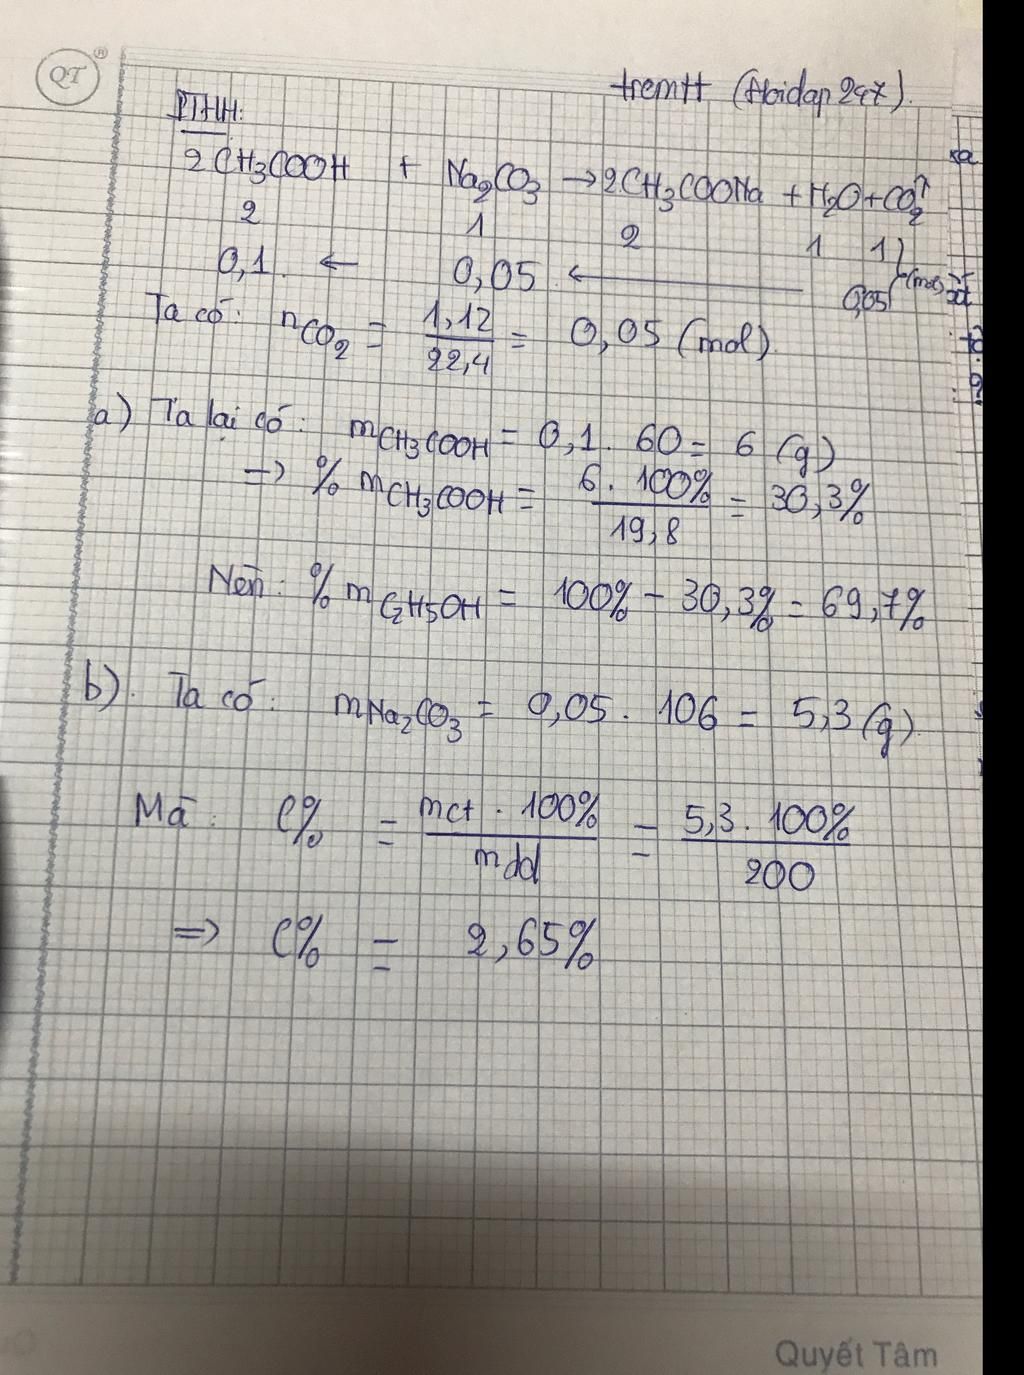 QT ®
tremtt (Hoidap247).
PTHH:
2CH3COOH + Na2CO3 → 2CH3COONa + H2O + CO2↑
2 1 2 1 1
0,1 ← 0,05 ← 0,05 (mol)
Ta có: nCO2 = 1,12/22,4 = 0,05 (mol).
a) Ta lại có: mCH3COOH = 0,1 . 60 = 6 (g)
=> % mCH3COOH = 6 . 100%/19,8 = 30,3%
Nên: % mC2H5OH = 100% - 30,3% = 69,7%
b). Ta có: mNa2CO3 = 0,05 . 106 = 5,3 (g).
Mà: C% = mct . 100%/mdd = 5,3 . 100%/200
=> C% = 2,65%
Quyết Tâm